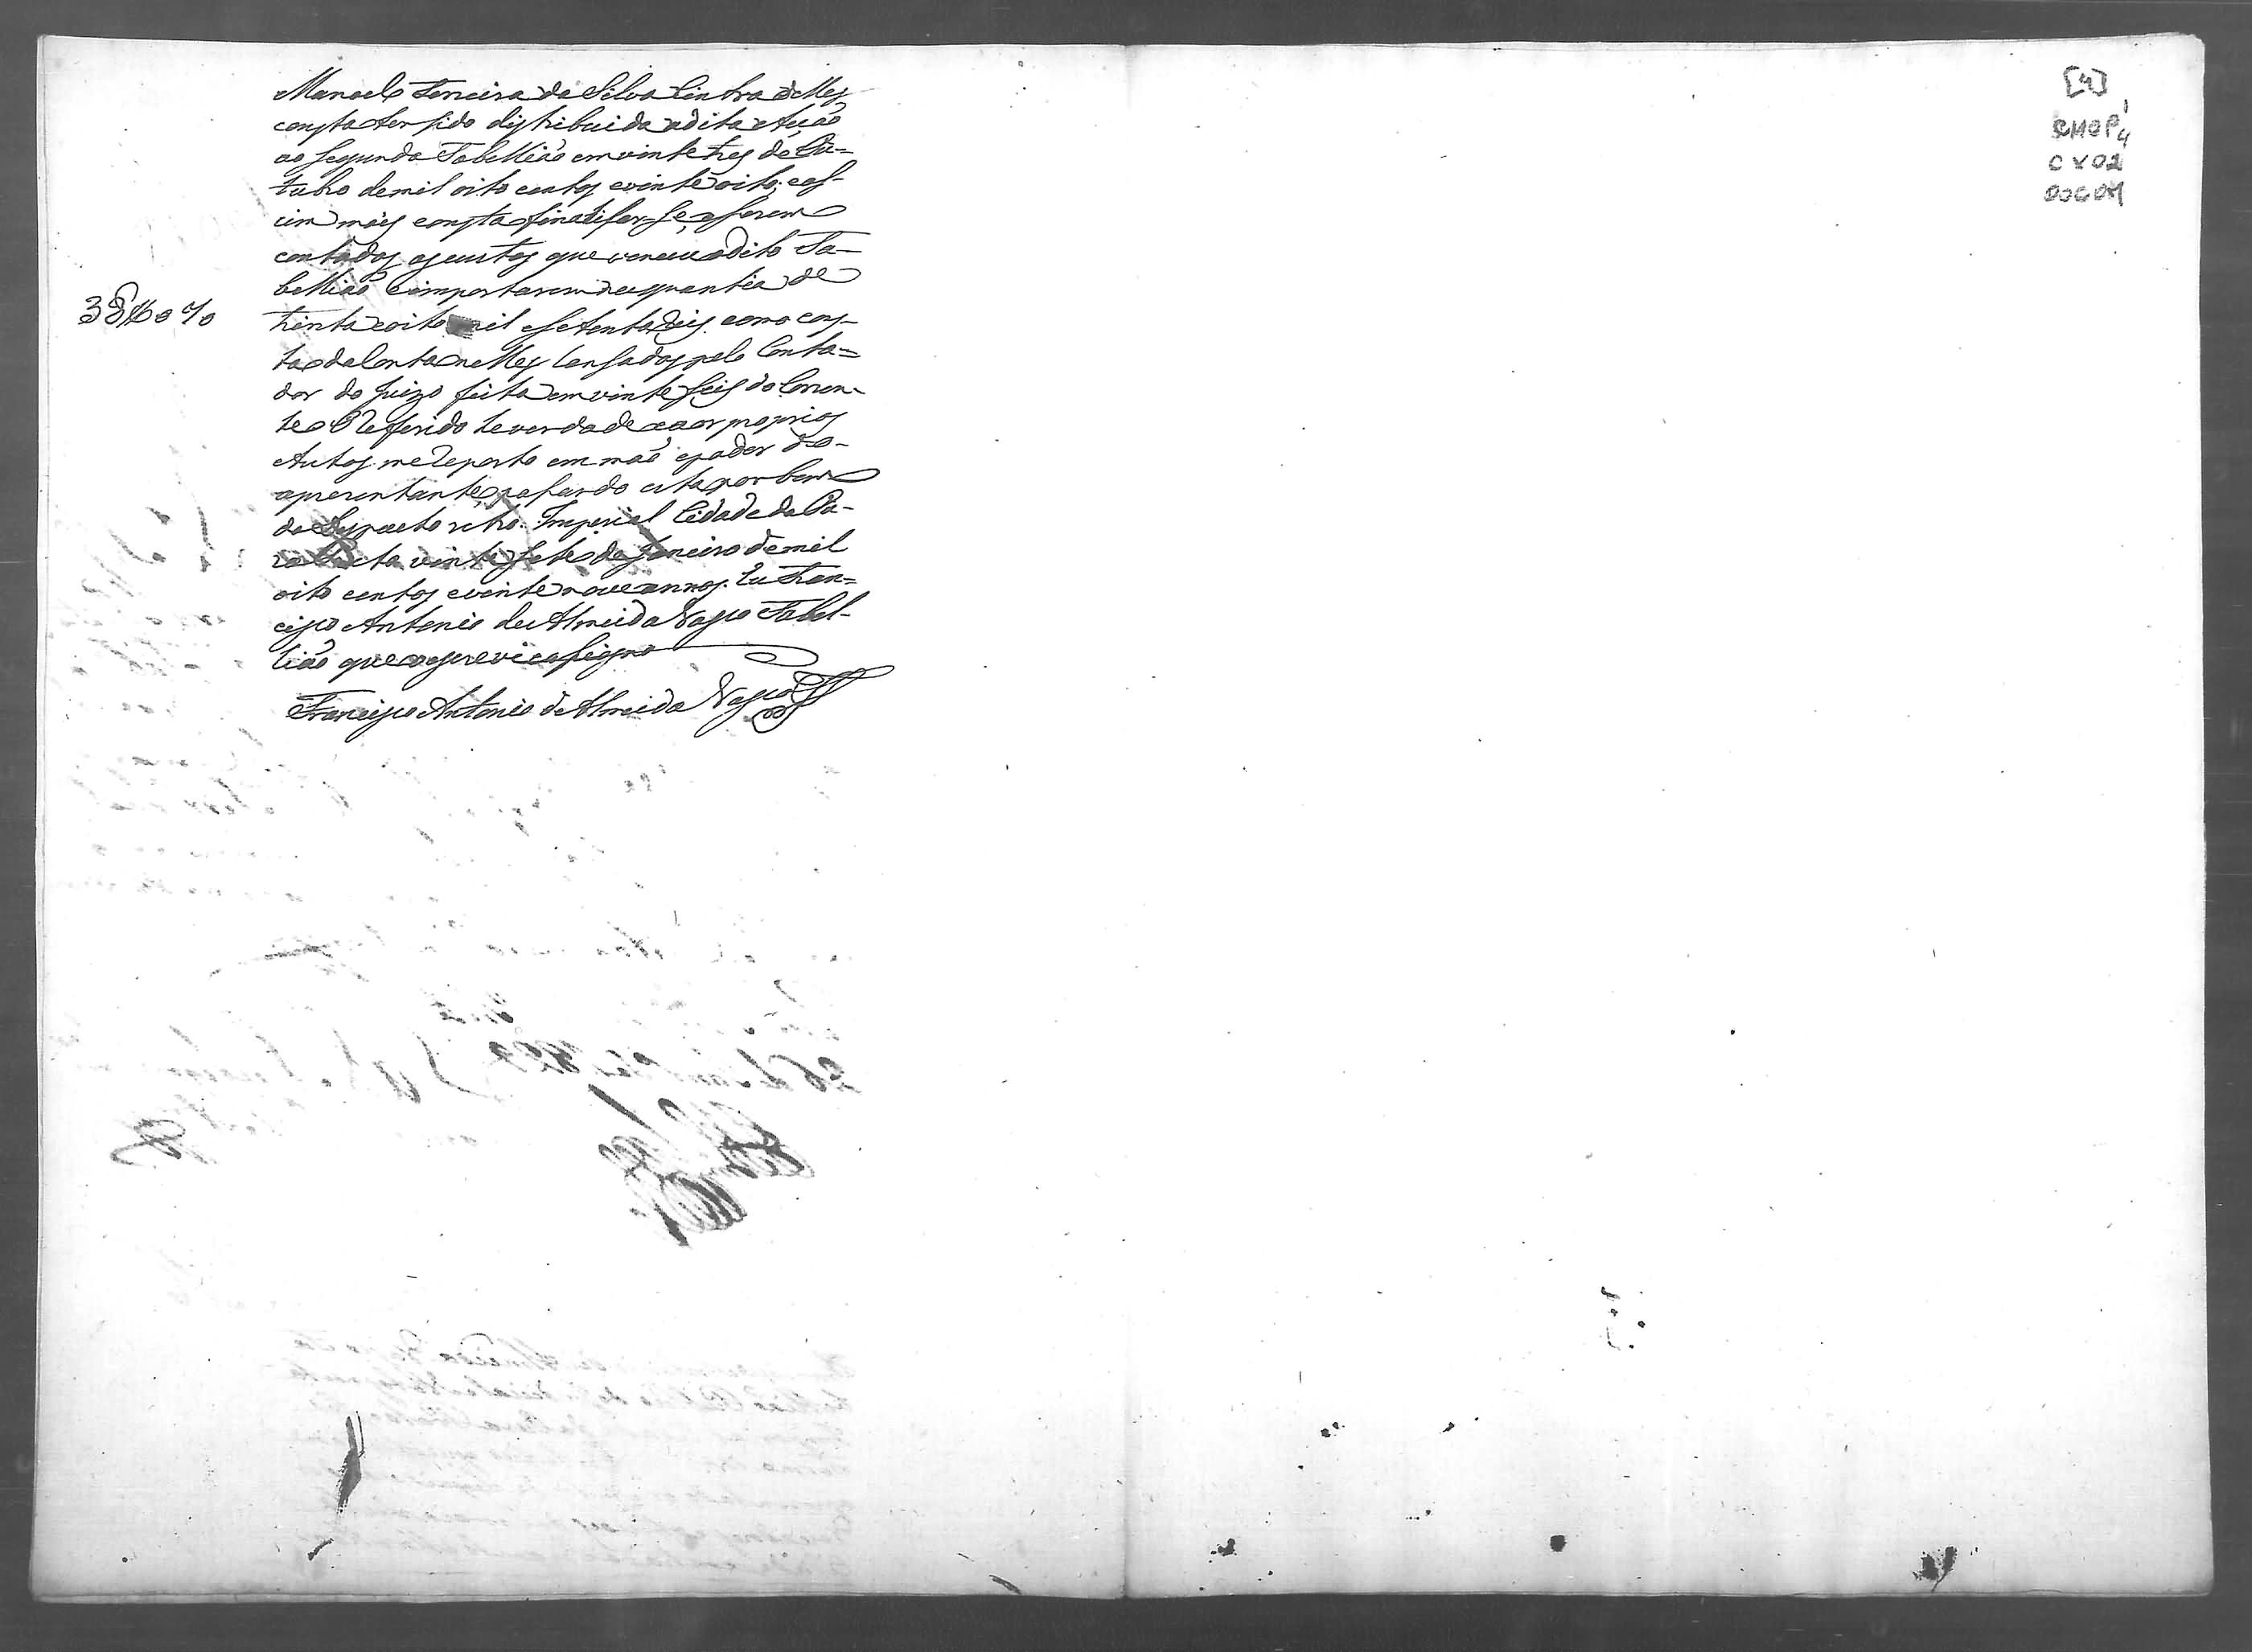 Manoel Ferreira da Silva Cintra delles
consta ter sido distribuida adita Auçaõ
ao Segundo Tabelliaõ em vinte tres de Ou=
tubro demil oito centos evinte oito; eas-
cim máis consta finalisar-se, eserem
contados ascustos que venceu odito Ta-
belliaõ eimportarem naquantia de
38$070
trinta eoito mil esetenta reis. como cons-
ta da Conta nelles lansados pelo Conta=
dor do Juizo feita em vinte seis do Corren-
te O Referido he verdade eaos proprios
Autos me reporto em maõ epoder do
apresentante, epasso esta por bem
do Despacto retro. Imperial Cidade do Ou-
ro Preto vinte sete de Janeiro demil
oito centos evinte nove annos. Eu Fran=
cisco Antonio de Almeida Vasco Tabel-
liaõ que o escrevi eassigno
Francisco Antonio de Almeida Vasco
[4]
CMOP
CX02
DOC04